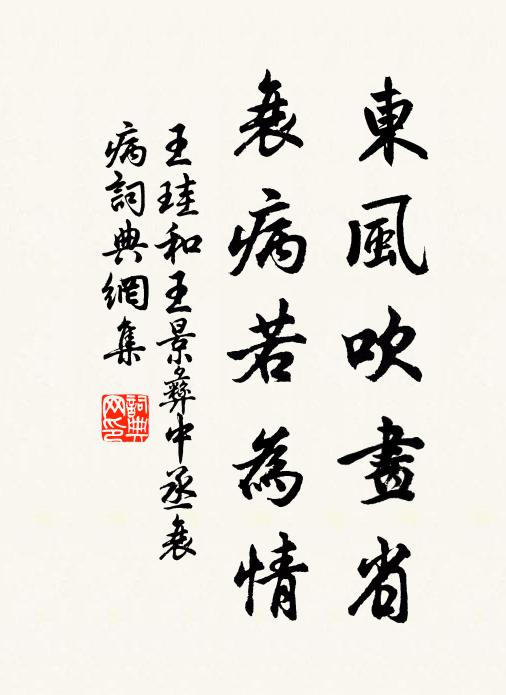 東風吹畫省
衰病若為情
王珪和王景彝中丞衰
病詞典網集
詞典網印